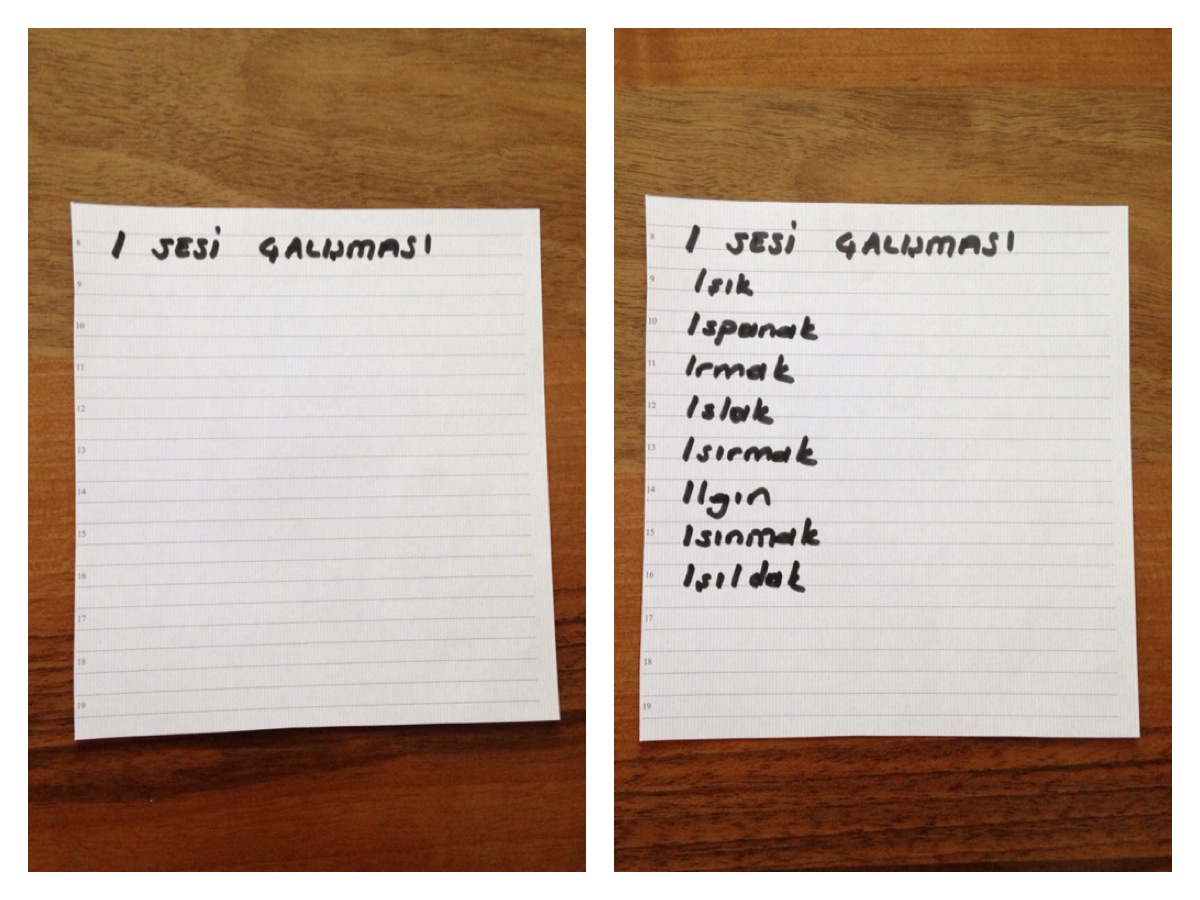 I SESİ ÇALIŞMASI
8
9
10
11
12
13
14
15
16
17
18
19
I SESİ ÇALIŞMASI
8
Işık
9
Ispanak
10
Irmak
11
Islak
12
Isırmak
13
Ilgın
14
Isınmak
15
Işıldak
16
17
18
19